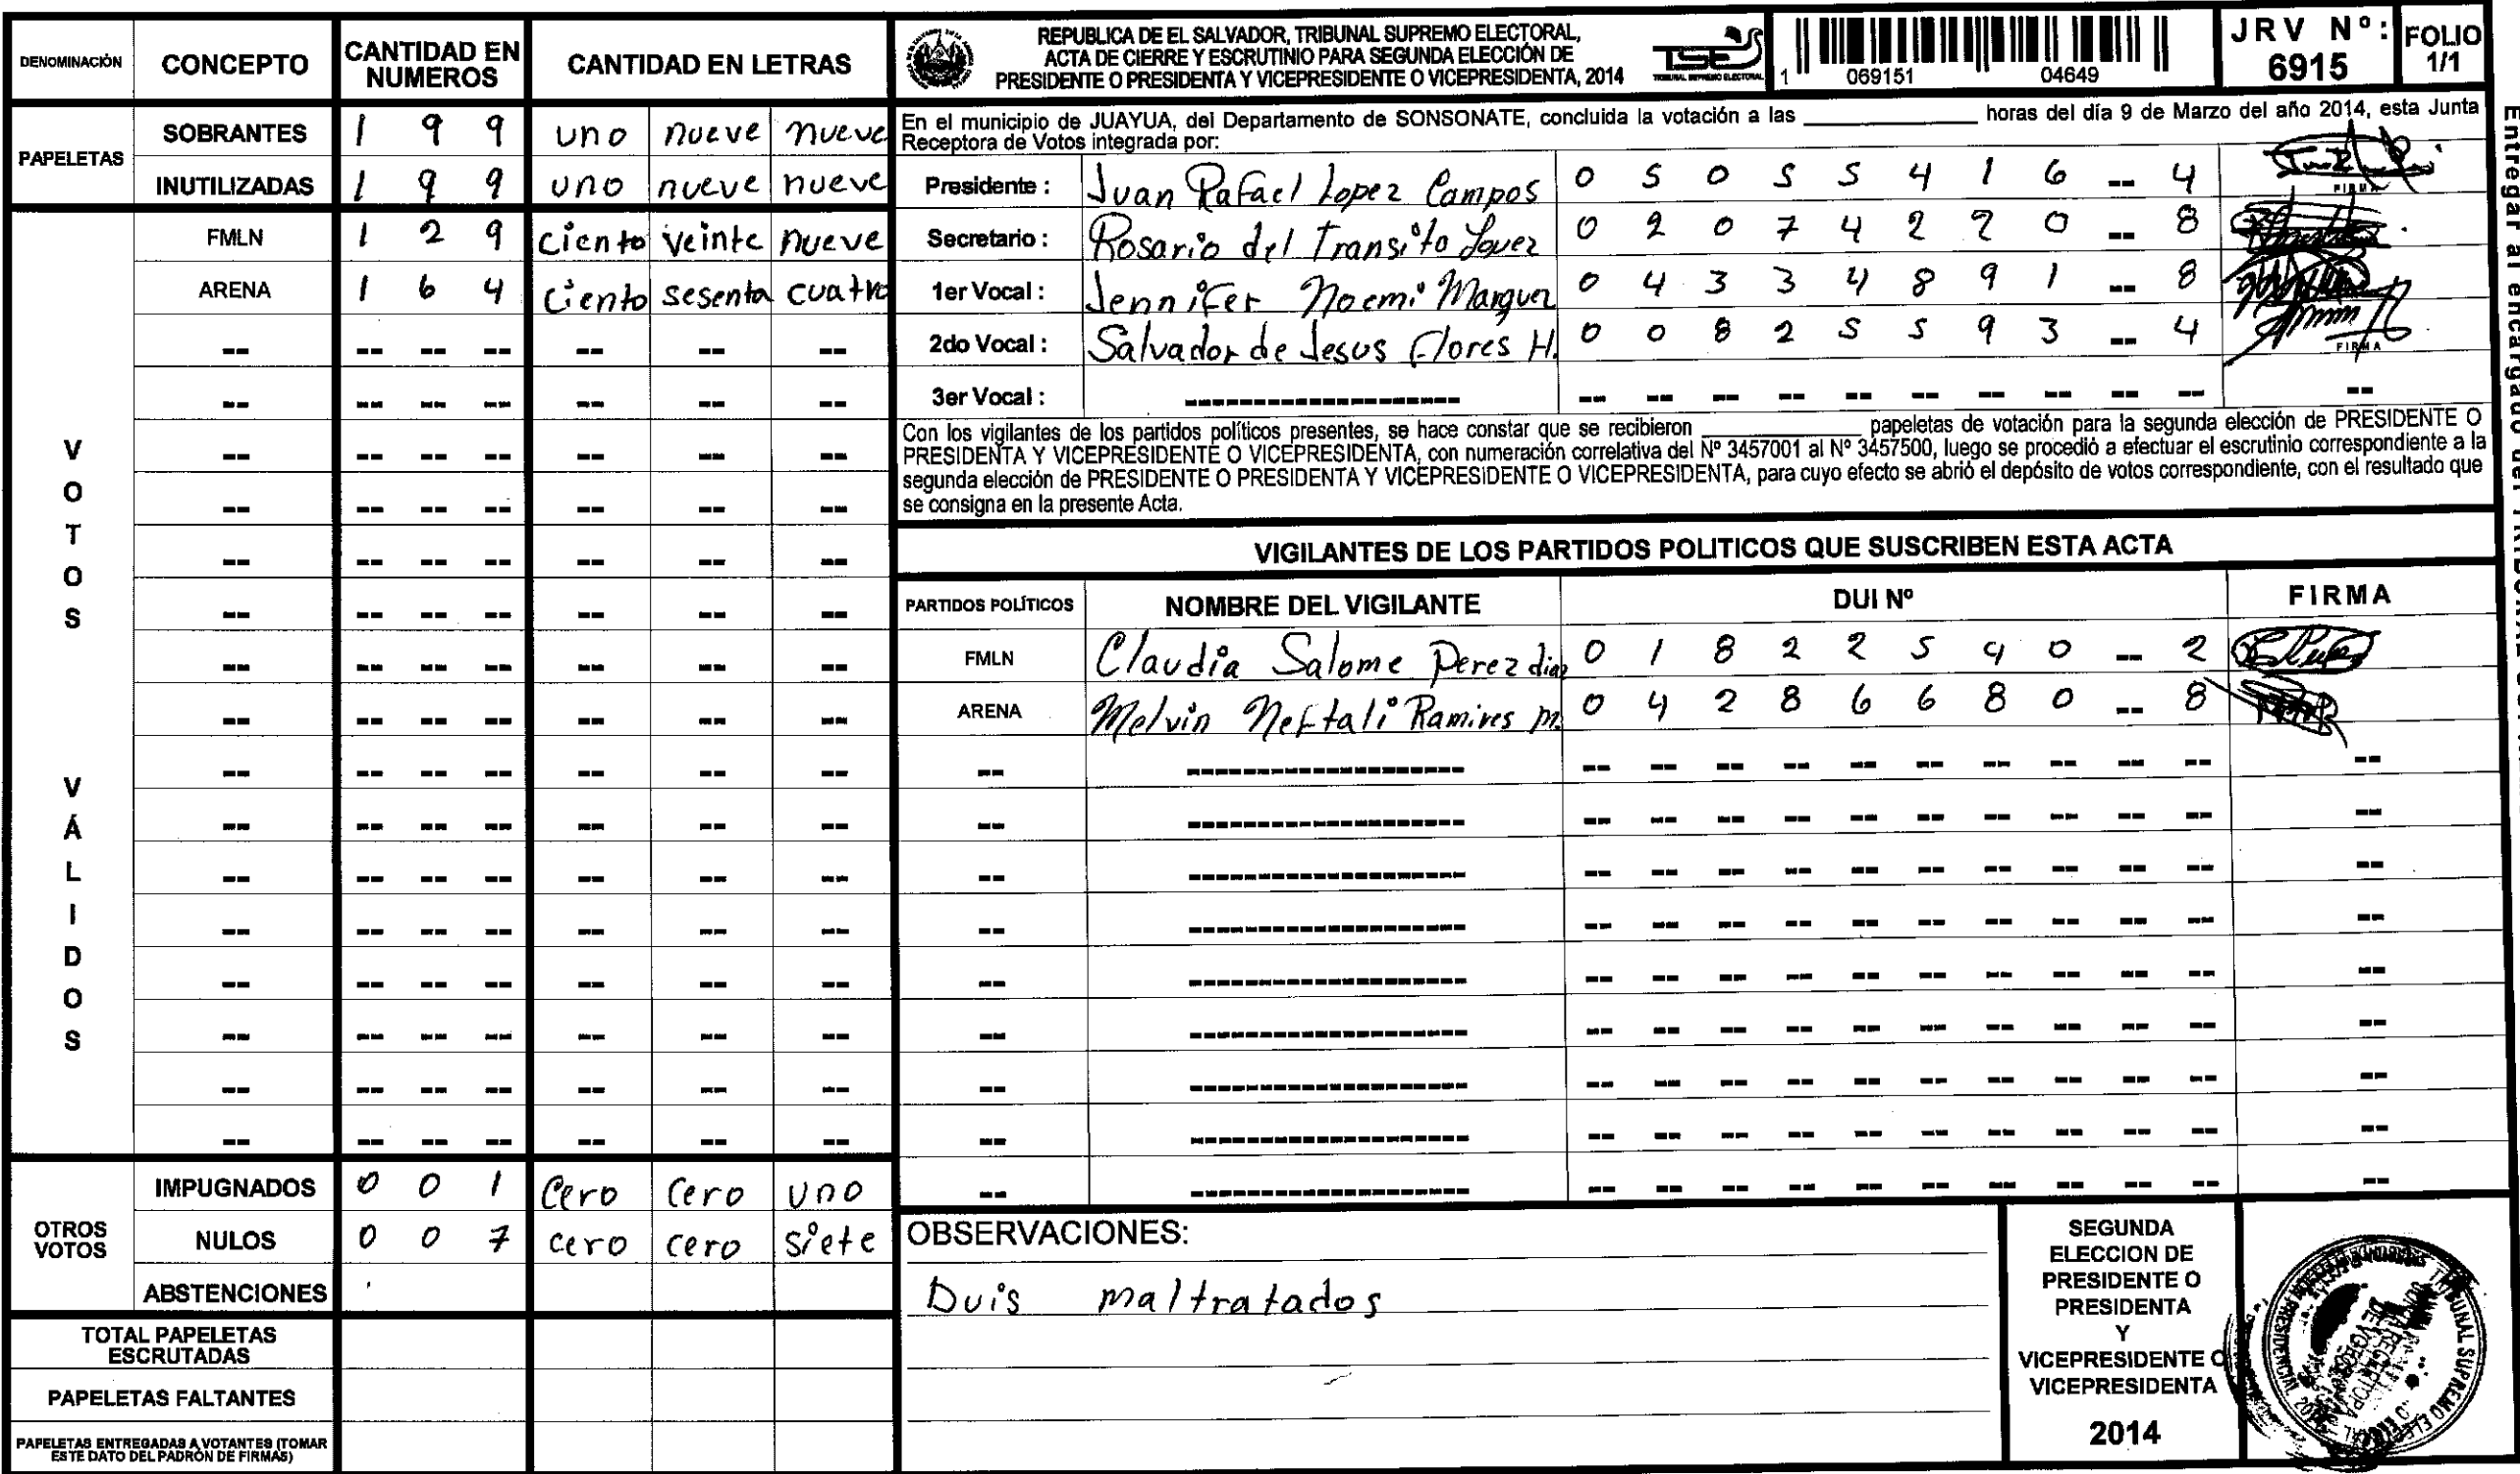 DENOMINACIÓN CONCEPTO CANTIDAD EN NUMEROS CANTIDAD EN LETRAS
PAPELETAS
SOBRANTES 1 9 9 uno nueve nueve
INUTILIZADAS 1 9 9 uno nueve nueve
VOTOS VÁLIDOS
FMLN 1 2 9 ciento veinte nueve
ARENA 1 6 4 ciento sesenta cuatro
OTROS VOTOS
IMPUGNADOS 0 0 1 Cero Cero uno
NULOS 0 0 7 cero cero siete
ABSTENCIONES
TOTAL PAPELETAS ESCRUTADAS
PAPELETAS FALTANTES
PAPELETAS ENTREGADAS A VOTANTES (TOMAR ESTE DATO DEL PADRÓN DE FIRMAS)
REPUBLICA DE EL SALVADOR, TRIBUNAL SUPREMO ELECTORAL,
ACTA DE CIERRE Y ESCRUTINIO PARA SEGUNDA ELECCIÓN DE
PRESIDENTE O PRESIDENTA Y VICEPRESIDENTE O VICEPRESIDENTA, 2014
TSE
TRIBUNAL SUPREMO ELECTORAL
1 069151 04649
JRV Nº: 6915
FOLIO 1/1
En el municipio de JUAYUA, del Departamento de SONSONATE, concluida la votación a las ____ horas del día 9 de Marzo del año 2014, esta Junta
Receptora de Votos integrada por:
Presidente : Juan Rafael Lopez Campos 0 5 0 5 5 4 1 6 -- 4
FIRMA
Secretario : Rosario del Transito Lopez 0 2 0 7 4 2 2 0 -- 8
1er Vocal : Jennifer Noemi Marquez 0 4 3 3 4 8 9 1 -- 8
2do Vocal : Salvador de Jesus Flores H. 0 0 8 2 5 5 9 3 -- 4
FIRMA
3er Vocal :
Con los vigilantes de los partidos políticos presentes, se hace constar que se recibieron ____ papeletas de votación para la segunda elección de PRESIDENTE O
PRESIDENTA Y VICEPRESIDENTE O VICEPRESIDENTA, con numeración correlativa del Nº 3457001 al Nº 3457500, luego se procedió a efectuar el escrutinio correspondiente a la
segunda elección de PRESIDENTE O PRESIDENTA Y VICEPRESIDENTE O VICEPRESIDENTA, para cuyo efecto se abrió el depósito de votos correspondiente, con el resultado que
se consigna en la presente Acta.
VIGILANTES DE LOS PARTIDOS POLITICOS QUE SUSCRIBEN ESTA ACTA
PARTIDOS POLÍTICOS NOMBRE DEL VIGILANTE DUI Nº FIRMA
FMLN Claudia Salome Perez diaz 0 1 8 2 2 5 9 0 -- 2
ARENA Melvin Neftali Ramires M. 0 4 2 8 6 6 8 0 -- 8
OBSERVACIONES:
Duis maltratados
SEGUNDA
ELECCION DE
PRESIDENTE O
PRESIDENTA
Y
VICEPRESIDENTE O
VICEPRESIDENTA
2014
TRIBUNAL SUPREMO
Entregar al encargado del